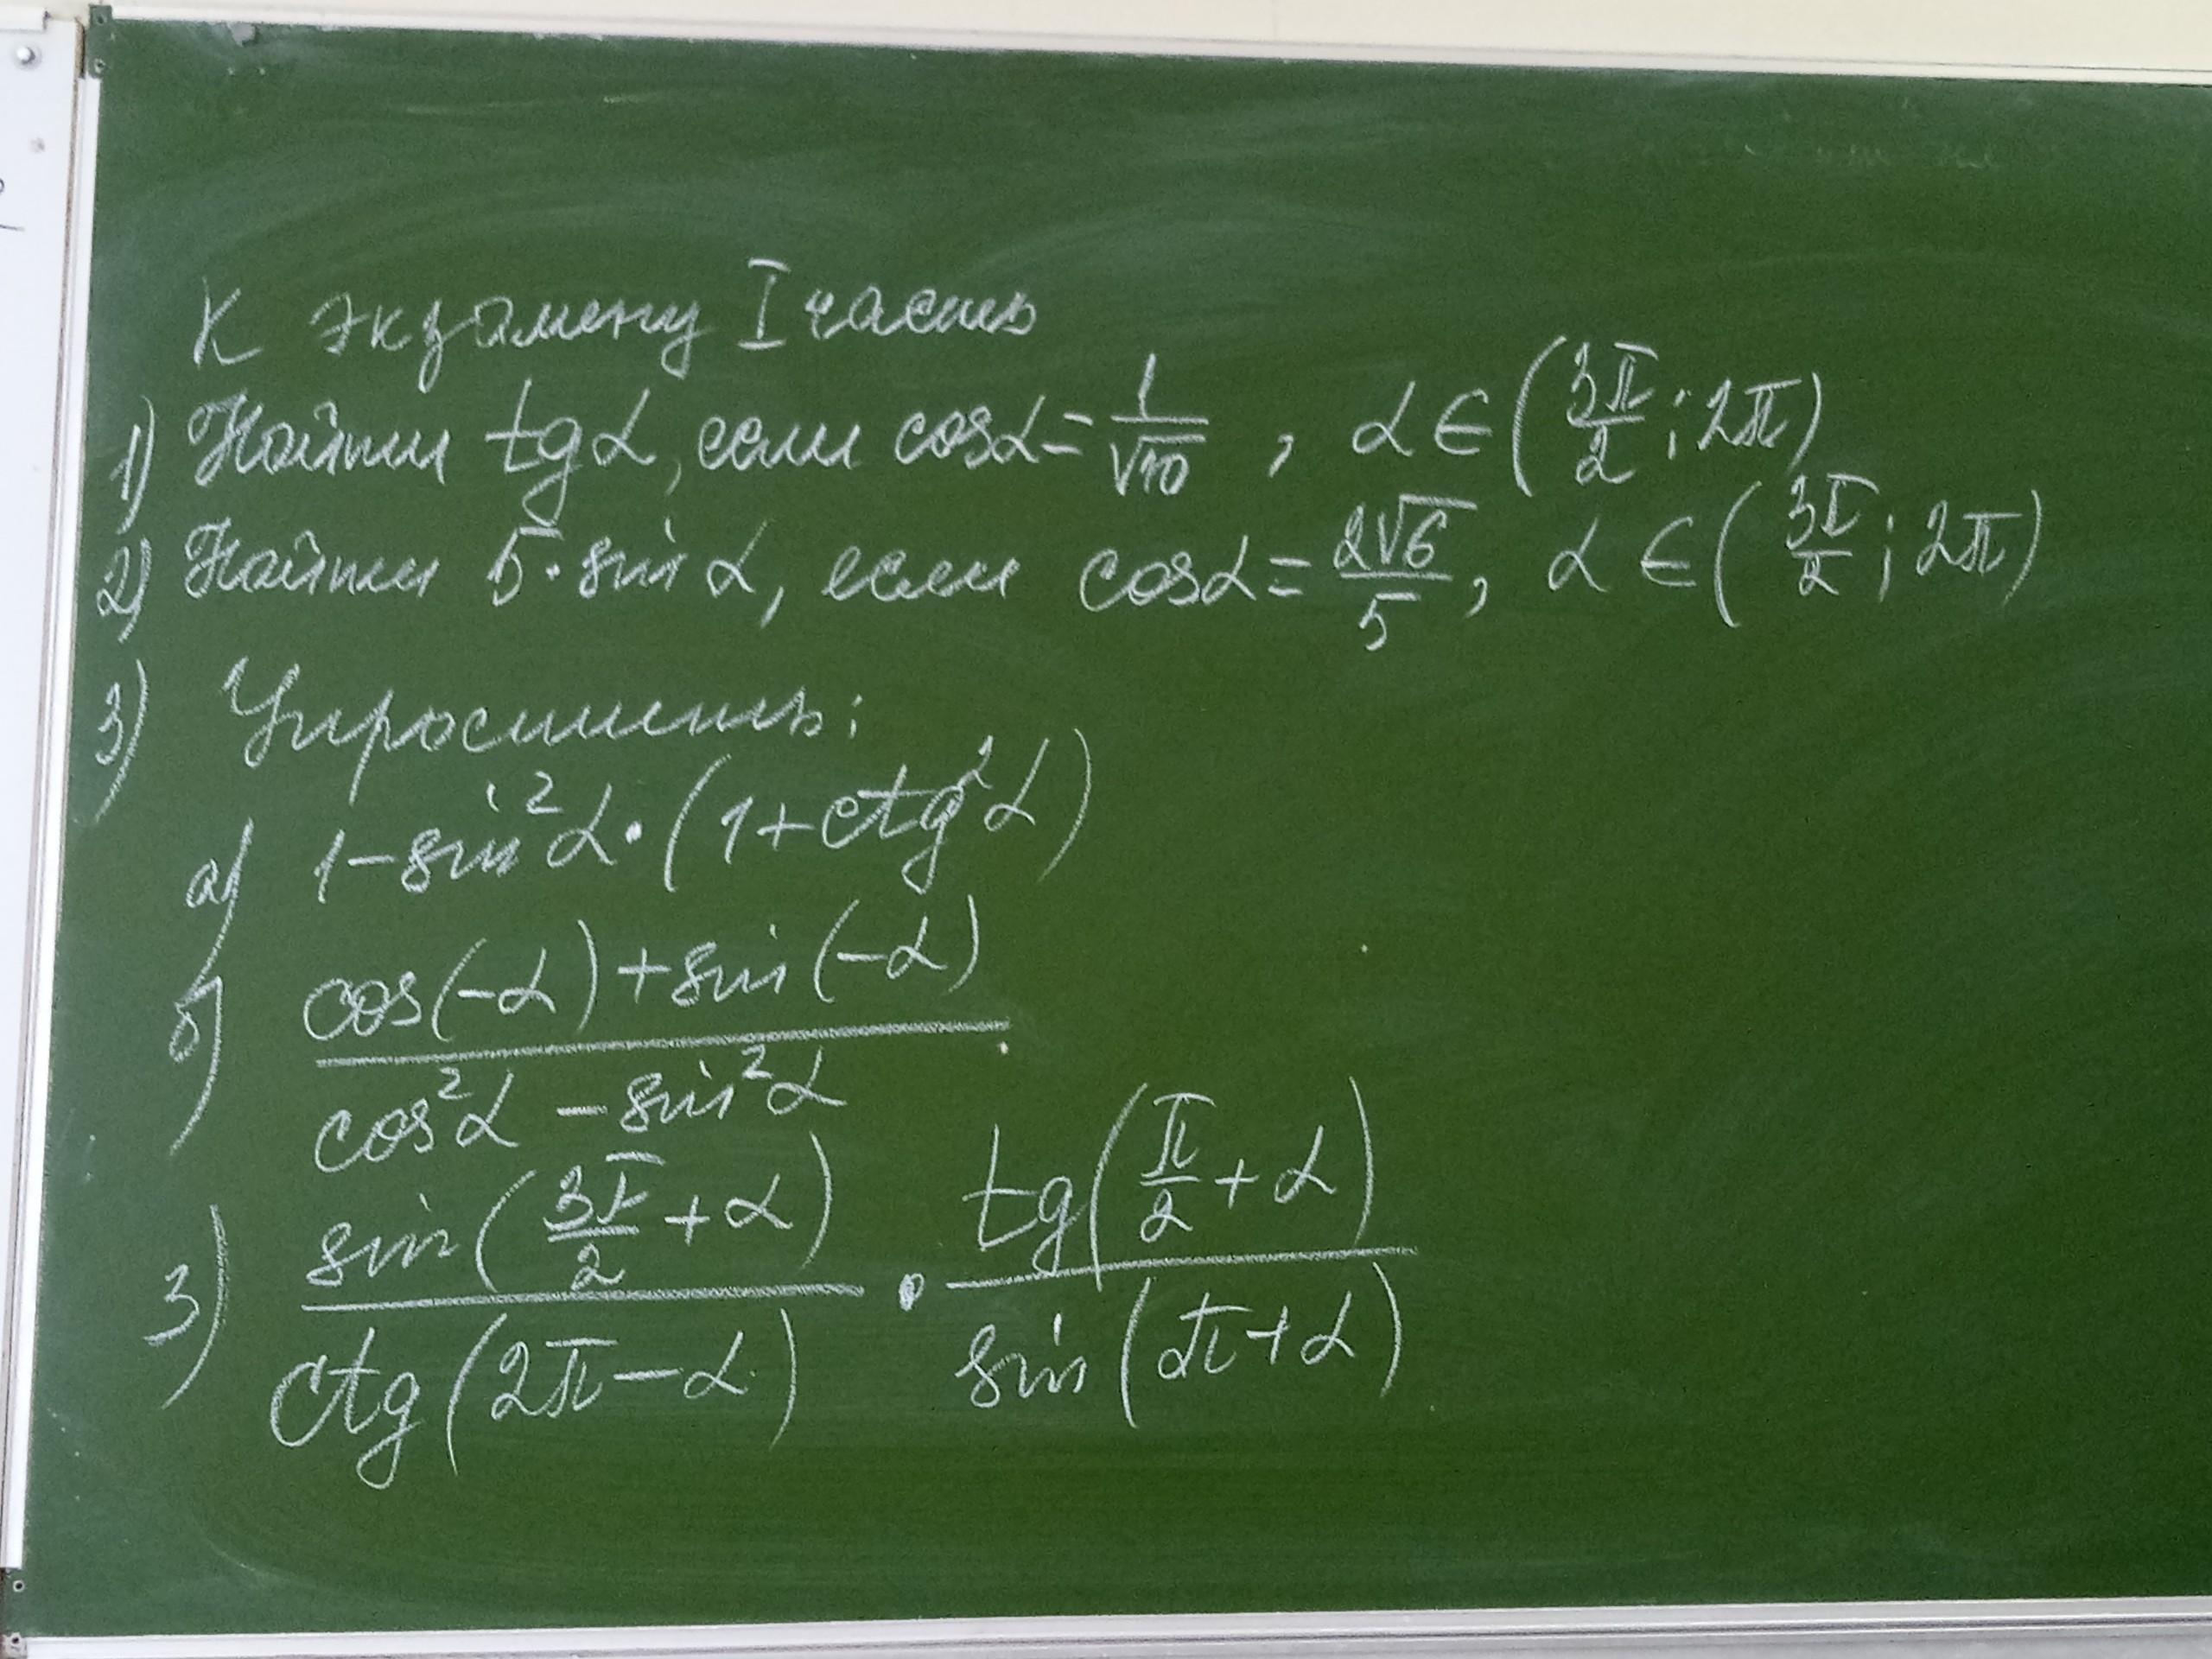 К экзамену I часть
1) Найти tg α, если cos α = 1/√10, α ∈ (3π/2; 2π)
2) Найти 5·sin α, если cos α = 2√6/5, α ∈ (3π/2; 2π)
3) Упростить:
а) 1 − sin²α · (1 + ctg²α)
б) (cos(−α) + sin(−α)) / (cos²α − sin²α)
3) sin(3π/2 + α) / ctg(2π − α) · tg(π/2 + α) / sin(π + α)